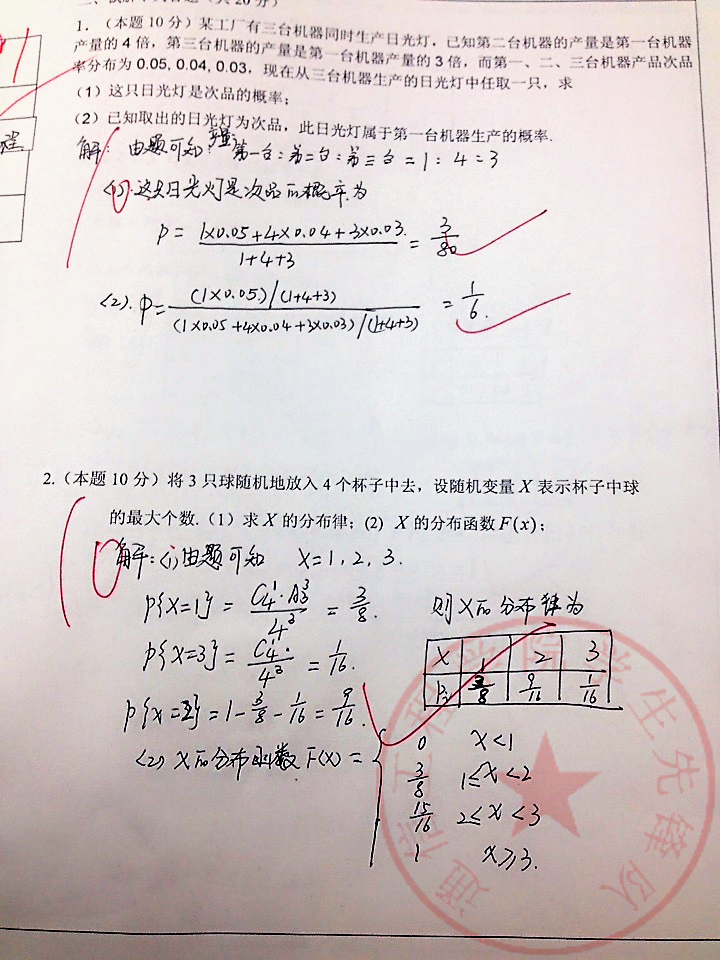 1. (本题 10 分) 某工厂有三台机器同时生产日光灯，已知第二台机器的产量是第一台机器
产量的 4 倍，第三台机器的产量是第一台机器产量的 3 倍，而第一、二、三台机器产品次品
率分布为 0.05, 0.04, 0.03，现在从三台机器生产的日光灯中任取一只，求
(1) 这只日光灯是次品的概率；
(2) 已知取出的日光灯为次品，此日光灯属于第一台机器生产的概率.
解: 由题可知: 产量 第一台:第二台:第三台 = 1: 4 = 3
(1). 这只日光灯是次品的概率为
P = (1×0.05+4×0.04+3×0.03)/(1+4+3) = 3/80
(2). P = ((1×0.05)/(1+4+3))/((1×0.05+4×0.04+3×0.03)/(1+4+3)) = 1/6.
2. (本题 10 分) 将 3 只球随机地放入 4 个杯子中去，设随机变量 X 表示杯子中球
的最大个数. (1) 求 X 的分布律；(2) X 的分布函数 F(x)；
解: (1) 由题可知 X=1, 2, 3.
P{X=1} = 3/8. 则X的分布律为
P{X=3} = 1/16.
X 1 2 3
3/8 9/16 1/16
P{X=2} = 1 - 3/8 - 1/16 = 9/16.
(2) X的分布函数 F(X) =
0 X<1
3/8 1≤X<2
15/16 2≤X<3
1 X≥3.
通信工程学院学生先锋队